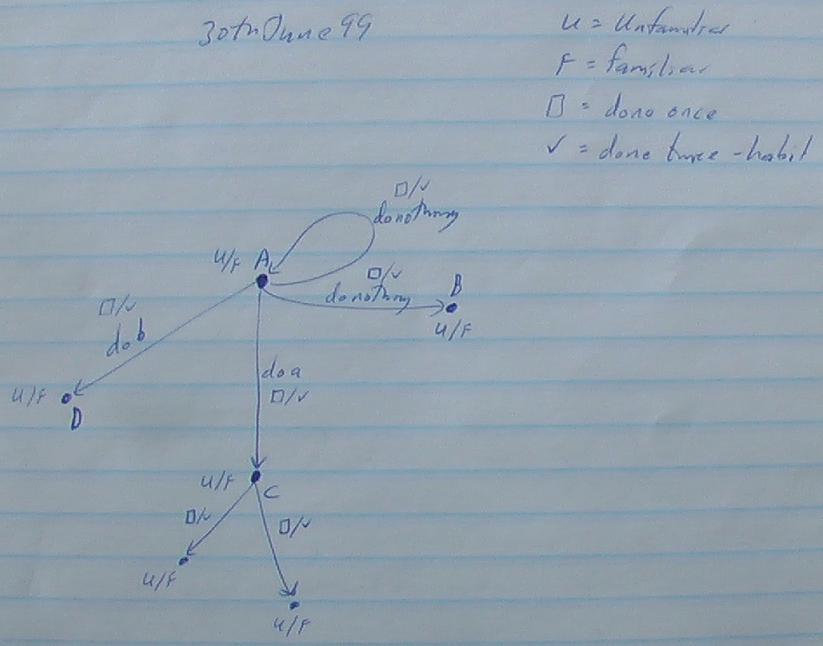 30th June 99
U = Unfamiliar
F = familiar
□ = done once
✓ = done twice - habit
□/✓
do nothing
U/F A
□/✓
do nothing B
U/F
□/✓
do b
U/F
D
do a
□/✓
U/F
C
□/✓
□/✓
U/F
U/F